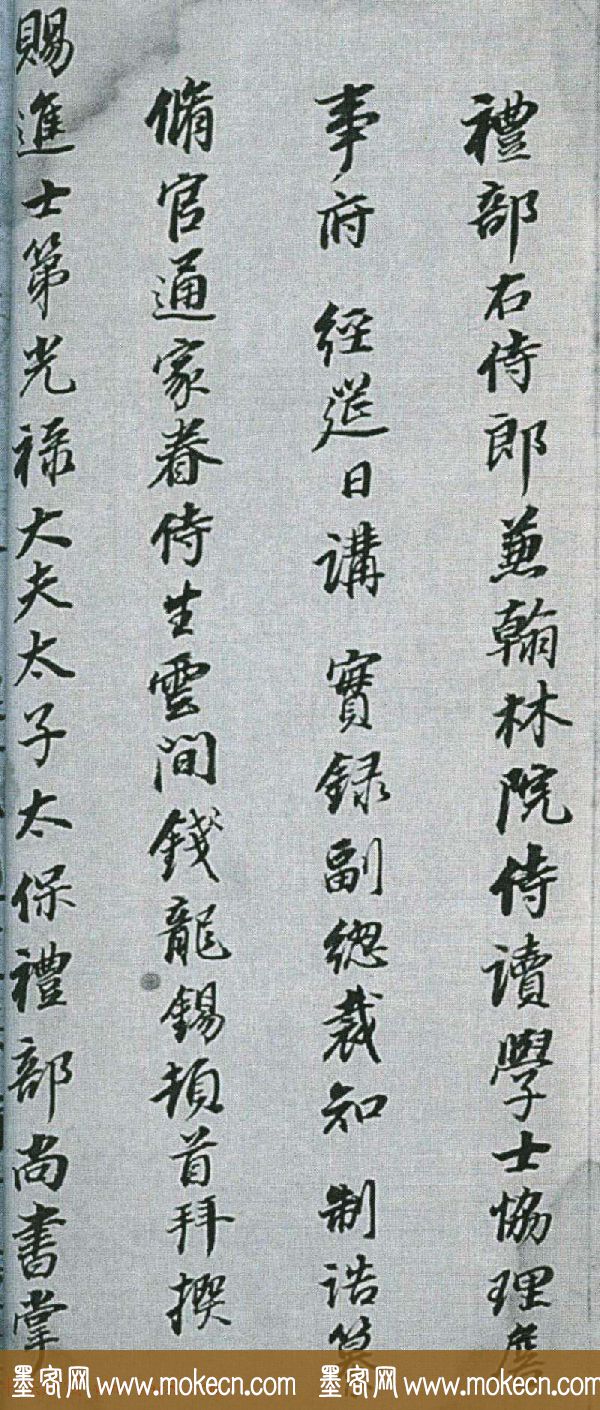 禮部右侍郎兼翰林院侍讀學士協理詹
事府 經筵日講 實錄副總裁知 制誥纂
脩官通家眷侍生雲間錢龍錫頓首拜撰
賜進士第光祿大夫太子太保禮部尚書掌
墨客网 www.mokecn.com 墨客网 www.mokecn.com